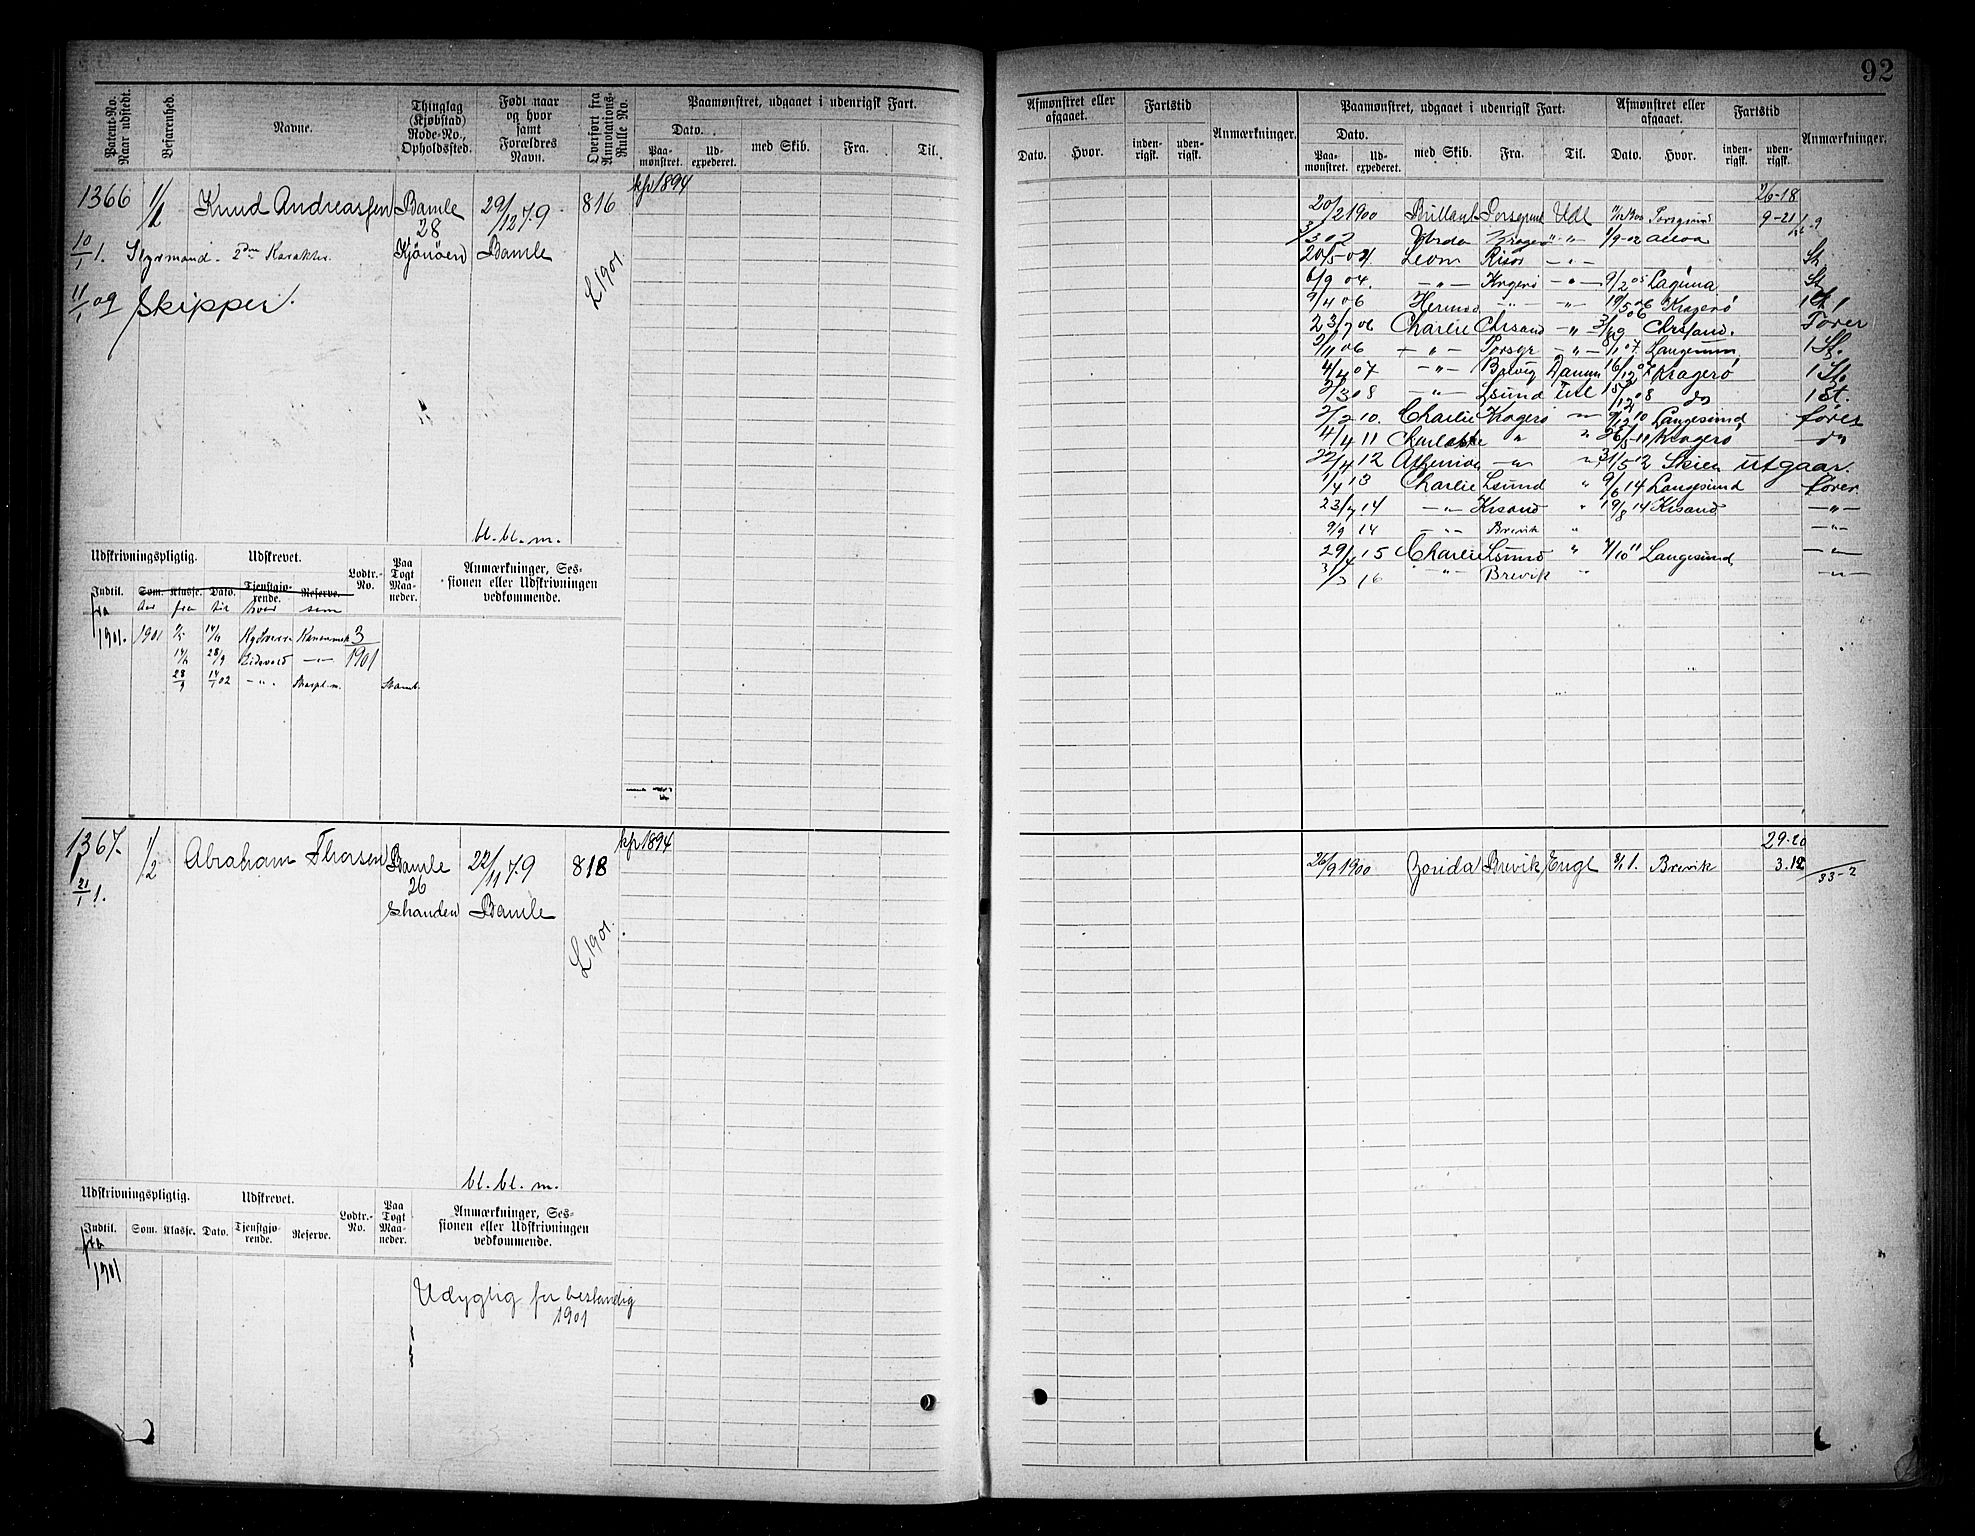 92
Patent-No. Naar udstedt.
Befarenhed.
Navne.
Thinglag (Kjøbstad) Rode-No., Opholdssted.
Født naar og hvor samt Forældres Navn.
Overført fra Annotations-Rulle No.
Paamønstret, udgaaet i udenrigsk Fart.
Dato.
Paa-mønstret.
Ud-expederet.
med Skib.
Fra.
Til.
1366 1/2 Knud Andreassen Bamle 29/12 79 816 kp 1894
28
10/1 1. Styrmand. 2den Karakter. Kjönöen Bamle
L 1901.
11/1 09 Skipper.
bl. bl. m.
Udskrivningspligtig.
Udskrevet.
Lodtr.-No.
Paa Togt Maa-neder.
Anmærkninger, Ses-sionen eller Udskrivningen vedkommende.
Indtil. Som. Klasse. Dato. Tjenstgjø-rende. Reserve.
fra Aar fra til hvor som
1901. 1901 3
28/9 Eidsvold -„- 1901
28/9 14/1 02 -„-
1367. 1/2 Abraham Thorsen Bamle 22/11 79 818 kp 1894
26
21/1 1. Bamle
L 1901.
bl. bl. m.
Udskrivningspligtig.
Udskrevet.
Lodtr.-No.
Paa Togt Maa-neder.
Anmærkninger, Ses-sionen eller Udskrivningen vedkommende.
Indtil. Som. Klasse. Dato. Tjenstgjø-rende. Reserve.
fra
1901
Udygtig for bestandig
1901
Afmønstret eller afgaaet.
Fartstid
Anmærkninger.
Dato. Hvor. inden-rigsk. uden-rigsk.
Paamønstret, udgaaet i udenrigsk Fart.
Afmønstret eller afgaaet.
Fartstid
Anmærkninger.
Dato.
Paa-mønstret. Ud-expederet. med Skib. Fra. Til. Dato. Hvor. inden-rigsk. uden-rigsk.
20/2 1900 Brillant Porsgrund Udl Porsgrund 9-21
3/3 02 Kragerø „-„ 1/9-02 Alloa
20/5-04 Leon Risør -„- St
6/9 04. -„- Kragerø -„- 9/2 05 Laguna St
9/4 06 Hermod -„- -„- 19/5 06 Kragerø 1 St
23/7 06 Charlie Chrsand -„- Chrsand. Fører
2/11 06 -„- Porsgr -„- 8/1 07. Langesund 1 St.
4/4 07 -„- 16/12 07 Kragerø 1 St.
2/3 08 -„- Lsund Udl 15/12 08 do 1 St.
2/2 10. Charlie Kragerø -„- 9/12 10 Langesund fører
4/4 11 Charlotte „ „ 26/5-11 Kragerø - do
22/4 12 -„- „ 31/5 12 Skien utgaar.
1/4 13 Charlie Lsund „ 9/6 14 Langesund fører.
23/7 14 -„- Krsand „ 19/8 14 Krsand -„-
9/9 14 -„- Brevik „ -„-
29/4 15 Charlie Lsund „ 4/10 11 Langesund -„-
3/3 16 -„- Brevik „ -„-
29-20
26/9 1900 Zorida Brevik Engl 8/1 1. Brevik 3.12
33-2